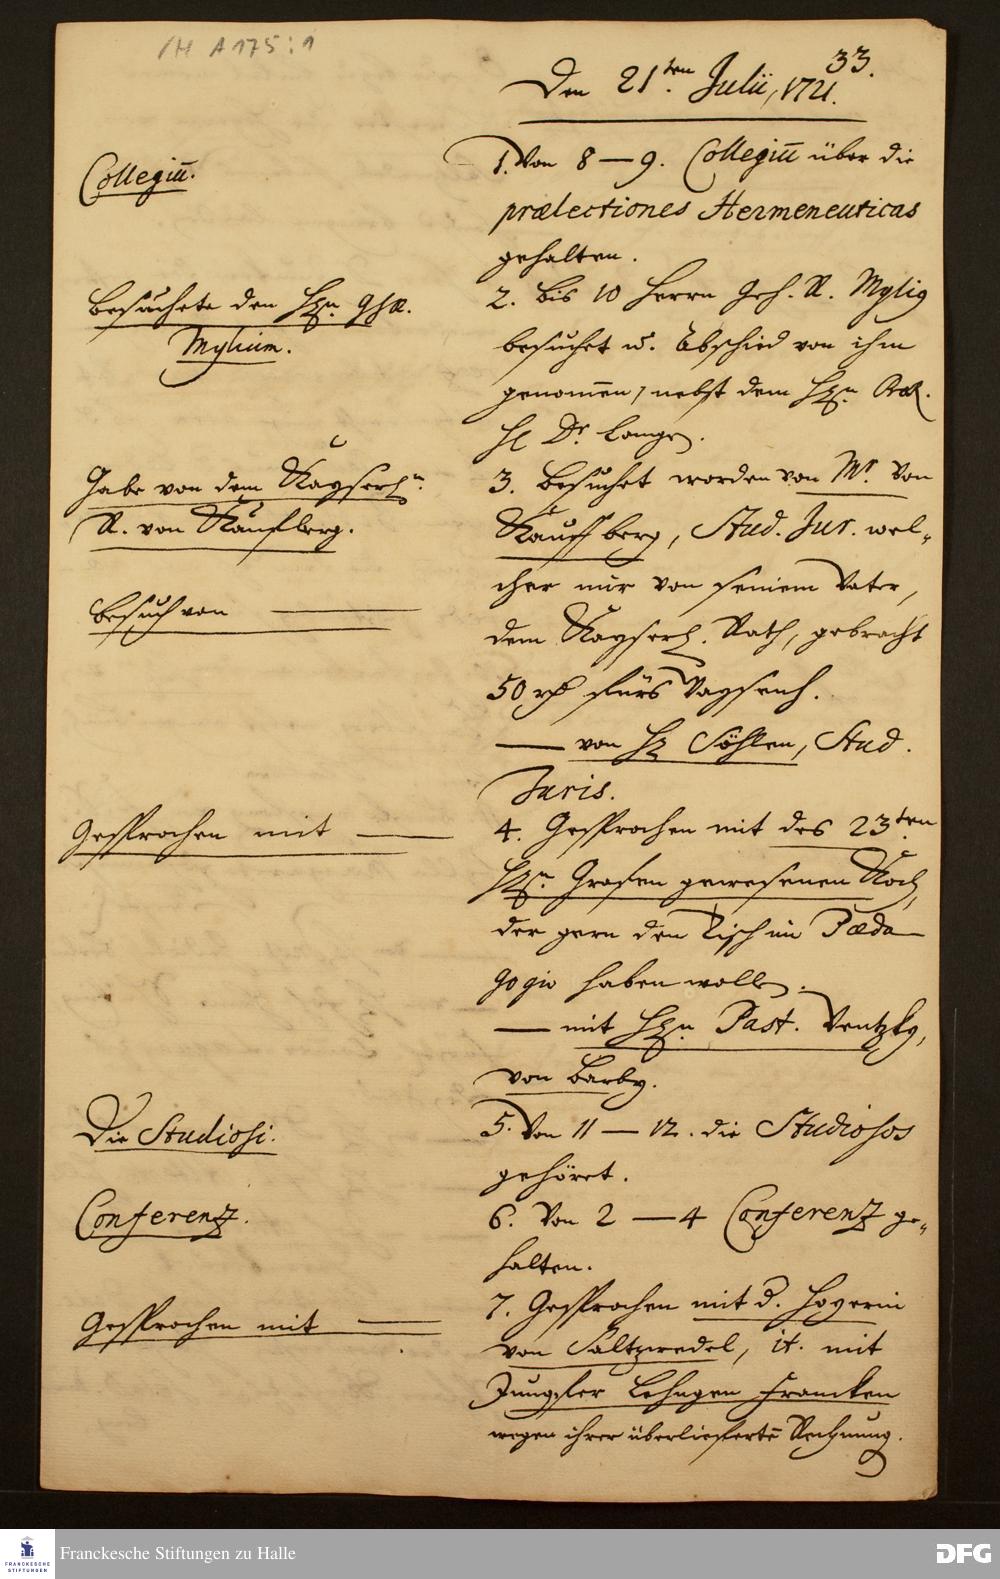 /H A 175:1
33.
Den 21ten Julii, 1721.
Collegiū.
1. Von 8 — 9. Collegiū über die
prælectiones Hermeneuticas
gehalten.
Besuchete den Hrn. GhR.
Mylium.
2. bis 10 Herrn Geh. R. Mylig
besuchet u. Abschied von ihm
genom̄en, nebst dem Hrn
H Dr. Langen.
Gabe von dem Kayserln.
R. von Kauffberg.
3. Besuchet worden von Mr. von
Kauffberg, Stud. Jur. wel-
cher mir von seinem Vater,
dem Kayserl. Rath, gebracht
50 rh fürs Waysenh.
Besuch von —
— von H Söhlen, Stud.
Juris.
Gesprochen mit —
4. Gesprochen mit des 23ten
Hrn. Grafen gewesenen Koch,
der gern den Tisch im Pæda
gogio haben wollen.
— mit Hrn. Past. Ventzky,
von Barby.
Die Studiosi.
5. Von 11 — 12. die Studiosos
gehöret.
Conferenz.
6. Von 2 — 4 Conferenz ge-
halten.
Gesprochen mit —
7. Gesprochen mit d. Hoyerin
von Saltzwedel, it. mit
Jungfer Lehngen Francken
wegen ihrer überliefertē Rechnung.
FRANCKESCHE
STIFTUNGEN
Franckesche Stiftungen zu Halle
DFG